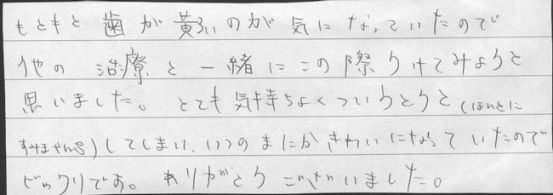 もともと歯が黄ろいのが気になっていたので
他の治療と一緒にこの際うけてみようと
思いました。とても気持ちよくついうとうと(ほんとに
すみません)してしまい、いつのまにかきれいになっていたので
ビックリです。ありがとうございました。